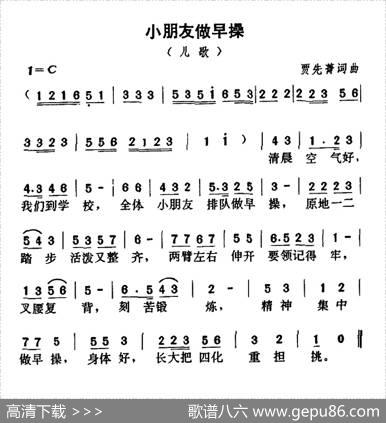 小朋友做早操
（儿歌）
1=C 贾先菁词曲
（1216 51 | 333 535 | 5355 1653 | 222 | 223 56 |
3323 | 556 2123 | 1 i ） | 43 | 1.23 |
清晨 空气好，
4.346 | 5- | 66 | 432 | 5.325 | 3- | 2222 |
我们到学 校， 全体 小朋友 排队做早 操， 原地一二
543 | 5357 | 6- | 7767 | 55 | 6.523 | 3- |
踏步 活泼又整 齐， 两臂左右 伸开 要领记得 牢，
1356 | 5- | 6.543 | 2- | 5.5 | 4346 |
叉腰复 背， 刻苦锻 炼， 精神 集中
775 | 533 | 2- | 2235 | 6.6 | 32 | 1 0 ‖
做早操， 身体好， 长大把四化 重担 挑。
高清下载 >>> 歌谱八六 www.gepu86.com